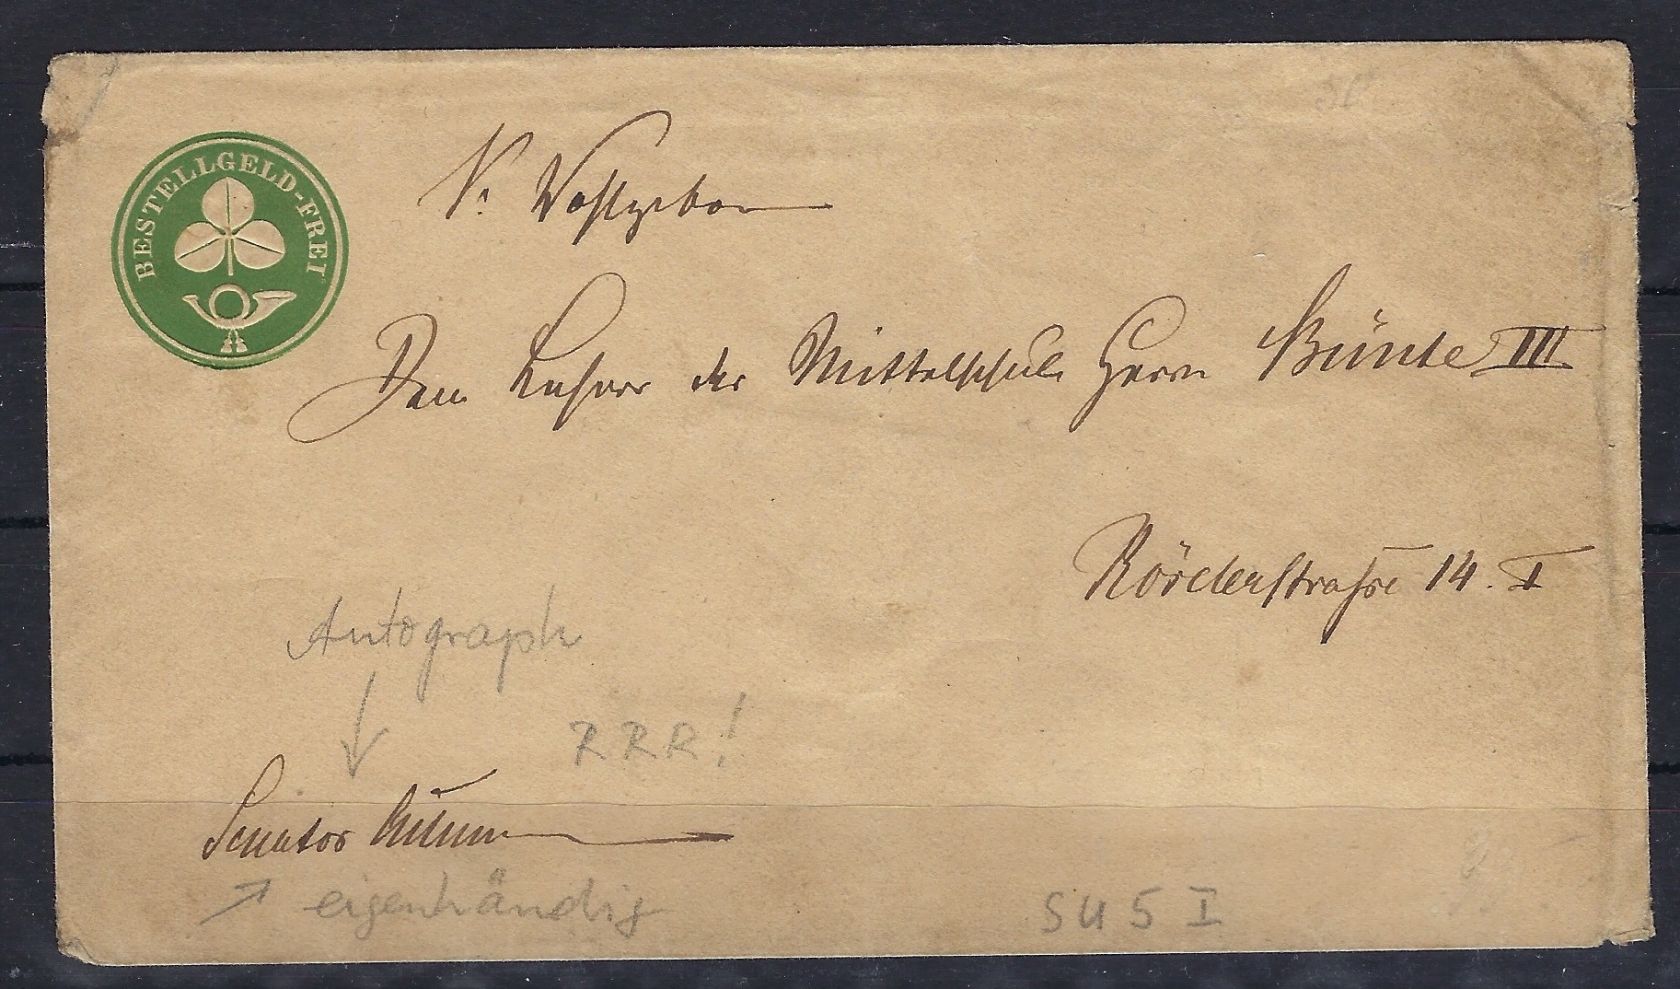 BESTELLGELD-FREI
Dem Lehrer der Mittelschule Herrn Bünte III
Röselerstraße 14. I
Autograph
RRR!
Senator
eigenhändig
SU 5 I